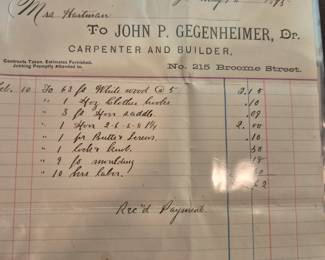 Mrs Hartman
To JOHN P. GEGENHEIMER, Dr.
CARPENTER AND BUILDER,
Contracts Taken, Estimates Furnished.
Jobbing Promptly Attended to.
No. 215 Broome Street.
10 To 62 ft White wood @ 5
" 1 Doz Clothes hooks .10
" 3 ft Door saddle .09
" 1 Door 2-6 6-6 1¼ 2.00
" 1 pr Butts & Screws .10
" 1 lock & knob
" 9 ft moulding .18
" 10 hrs labor
Rec'd Payment